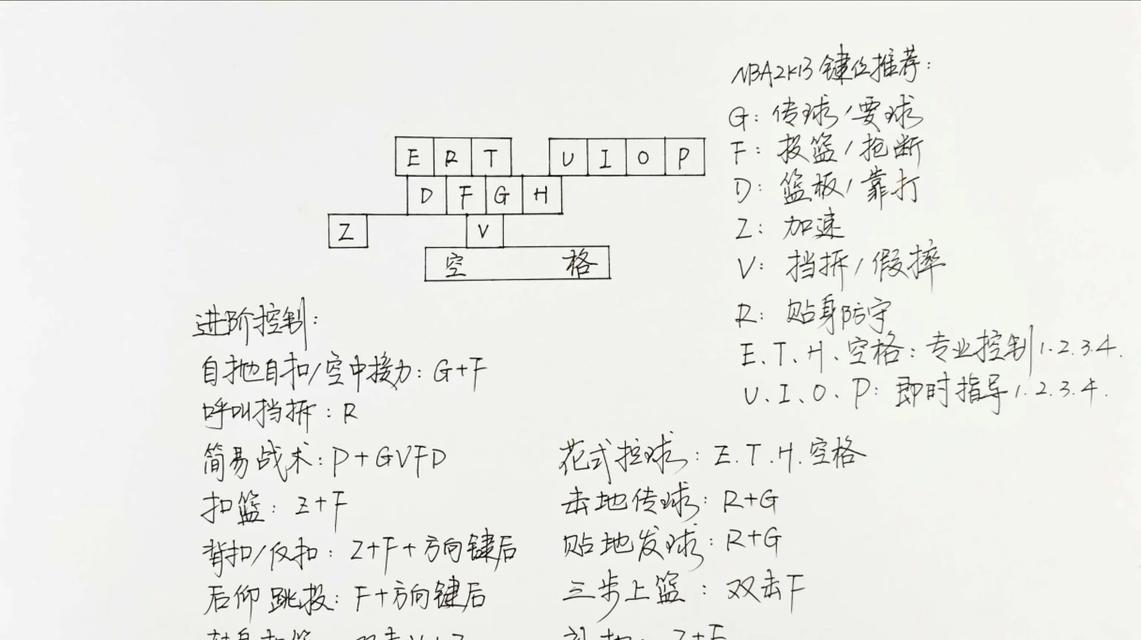 NBA2K13键位推荐:
G: 传球/要球
F: 投篮/抢断
D: 篮板/靠打
Z: 加速
V: 挡拆/假摔
R: 贴身防守
E.T.H.空格: 专业控制1.2.3.4.
U.I.O.P: 即时指导1.2.3.4.
E R T U I O P
D F G H
Z V
空 格
进阶控制:
自抛自扣/空中接力: G+F
呼叫挡拆: R
简易战术: P+GVFD
扣篮: Z+F
背扣/仅扣: Z+F+方向键后
后仰跳投: F+方向键后
花式控球: E.T.H.空格
击地传球: R+G
贴地发球: R+G
三步上篮: 双击F